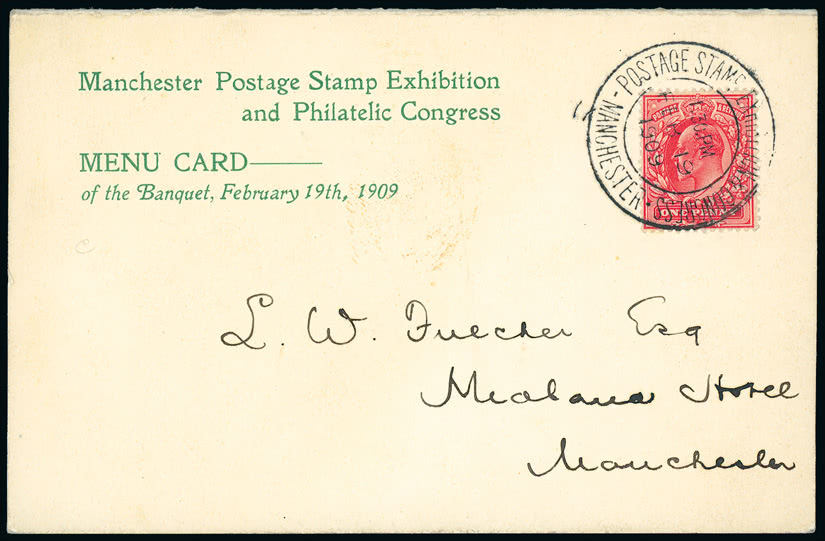 Manchester Postage Stamp Exhibition
and Philatelic Congress
MENU CARD
of the Banquet, February 19th, 1909
MANCHESTER - POSTAGE STAMP EXHIBITION & CONGRESS
7.30 PM
19
1909
ONE PENNY
L. W. Fulcher Esq
Midland Hotel
Manchester